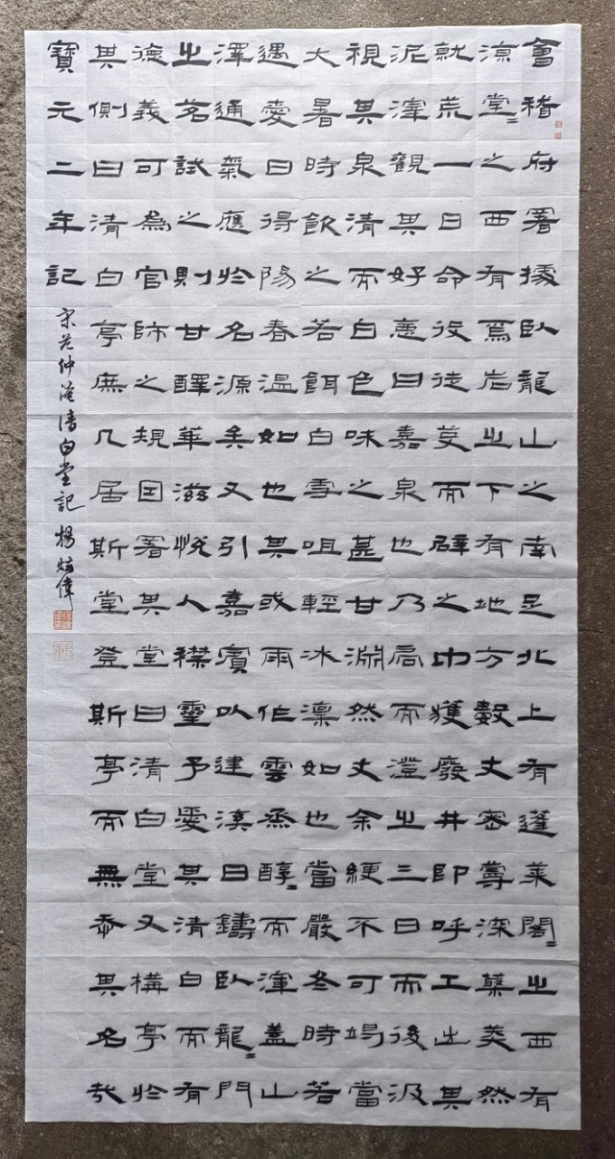 會稽府署據臥龍山之南足北上有蓬萊閣〻之西有
涼堂〻之西有焉岩之下有地方數丈密蔓深藂莽然
就荒一日命役徒芟而辟之中獲廢井即呼工出其
泥滓觀其好惡曰嘉泉也乃扃而澄之三日而後汲
視其泉清而白色味之甚甘淵然丈余綆不可竭當
大暑時飲之若餌白雪咀輕冰凜如也當嚴冬時若
遇愛日得陽春溫如也其或雨作雲烝醇〻而渾蓋山
澤通氣應於名源矣又引嘉賓以建溪日鑄臥龍〻門
之茗試之則甘醳華滋悅人襟靈予愛其清白而有
德義可為官師之規因署其堂曰清白堂又構亭於
其側曰清白亭庶几居斯堂登斯亭而無忝其名哉
寶元二年記
宋范仲淹清白堂記 楊偉